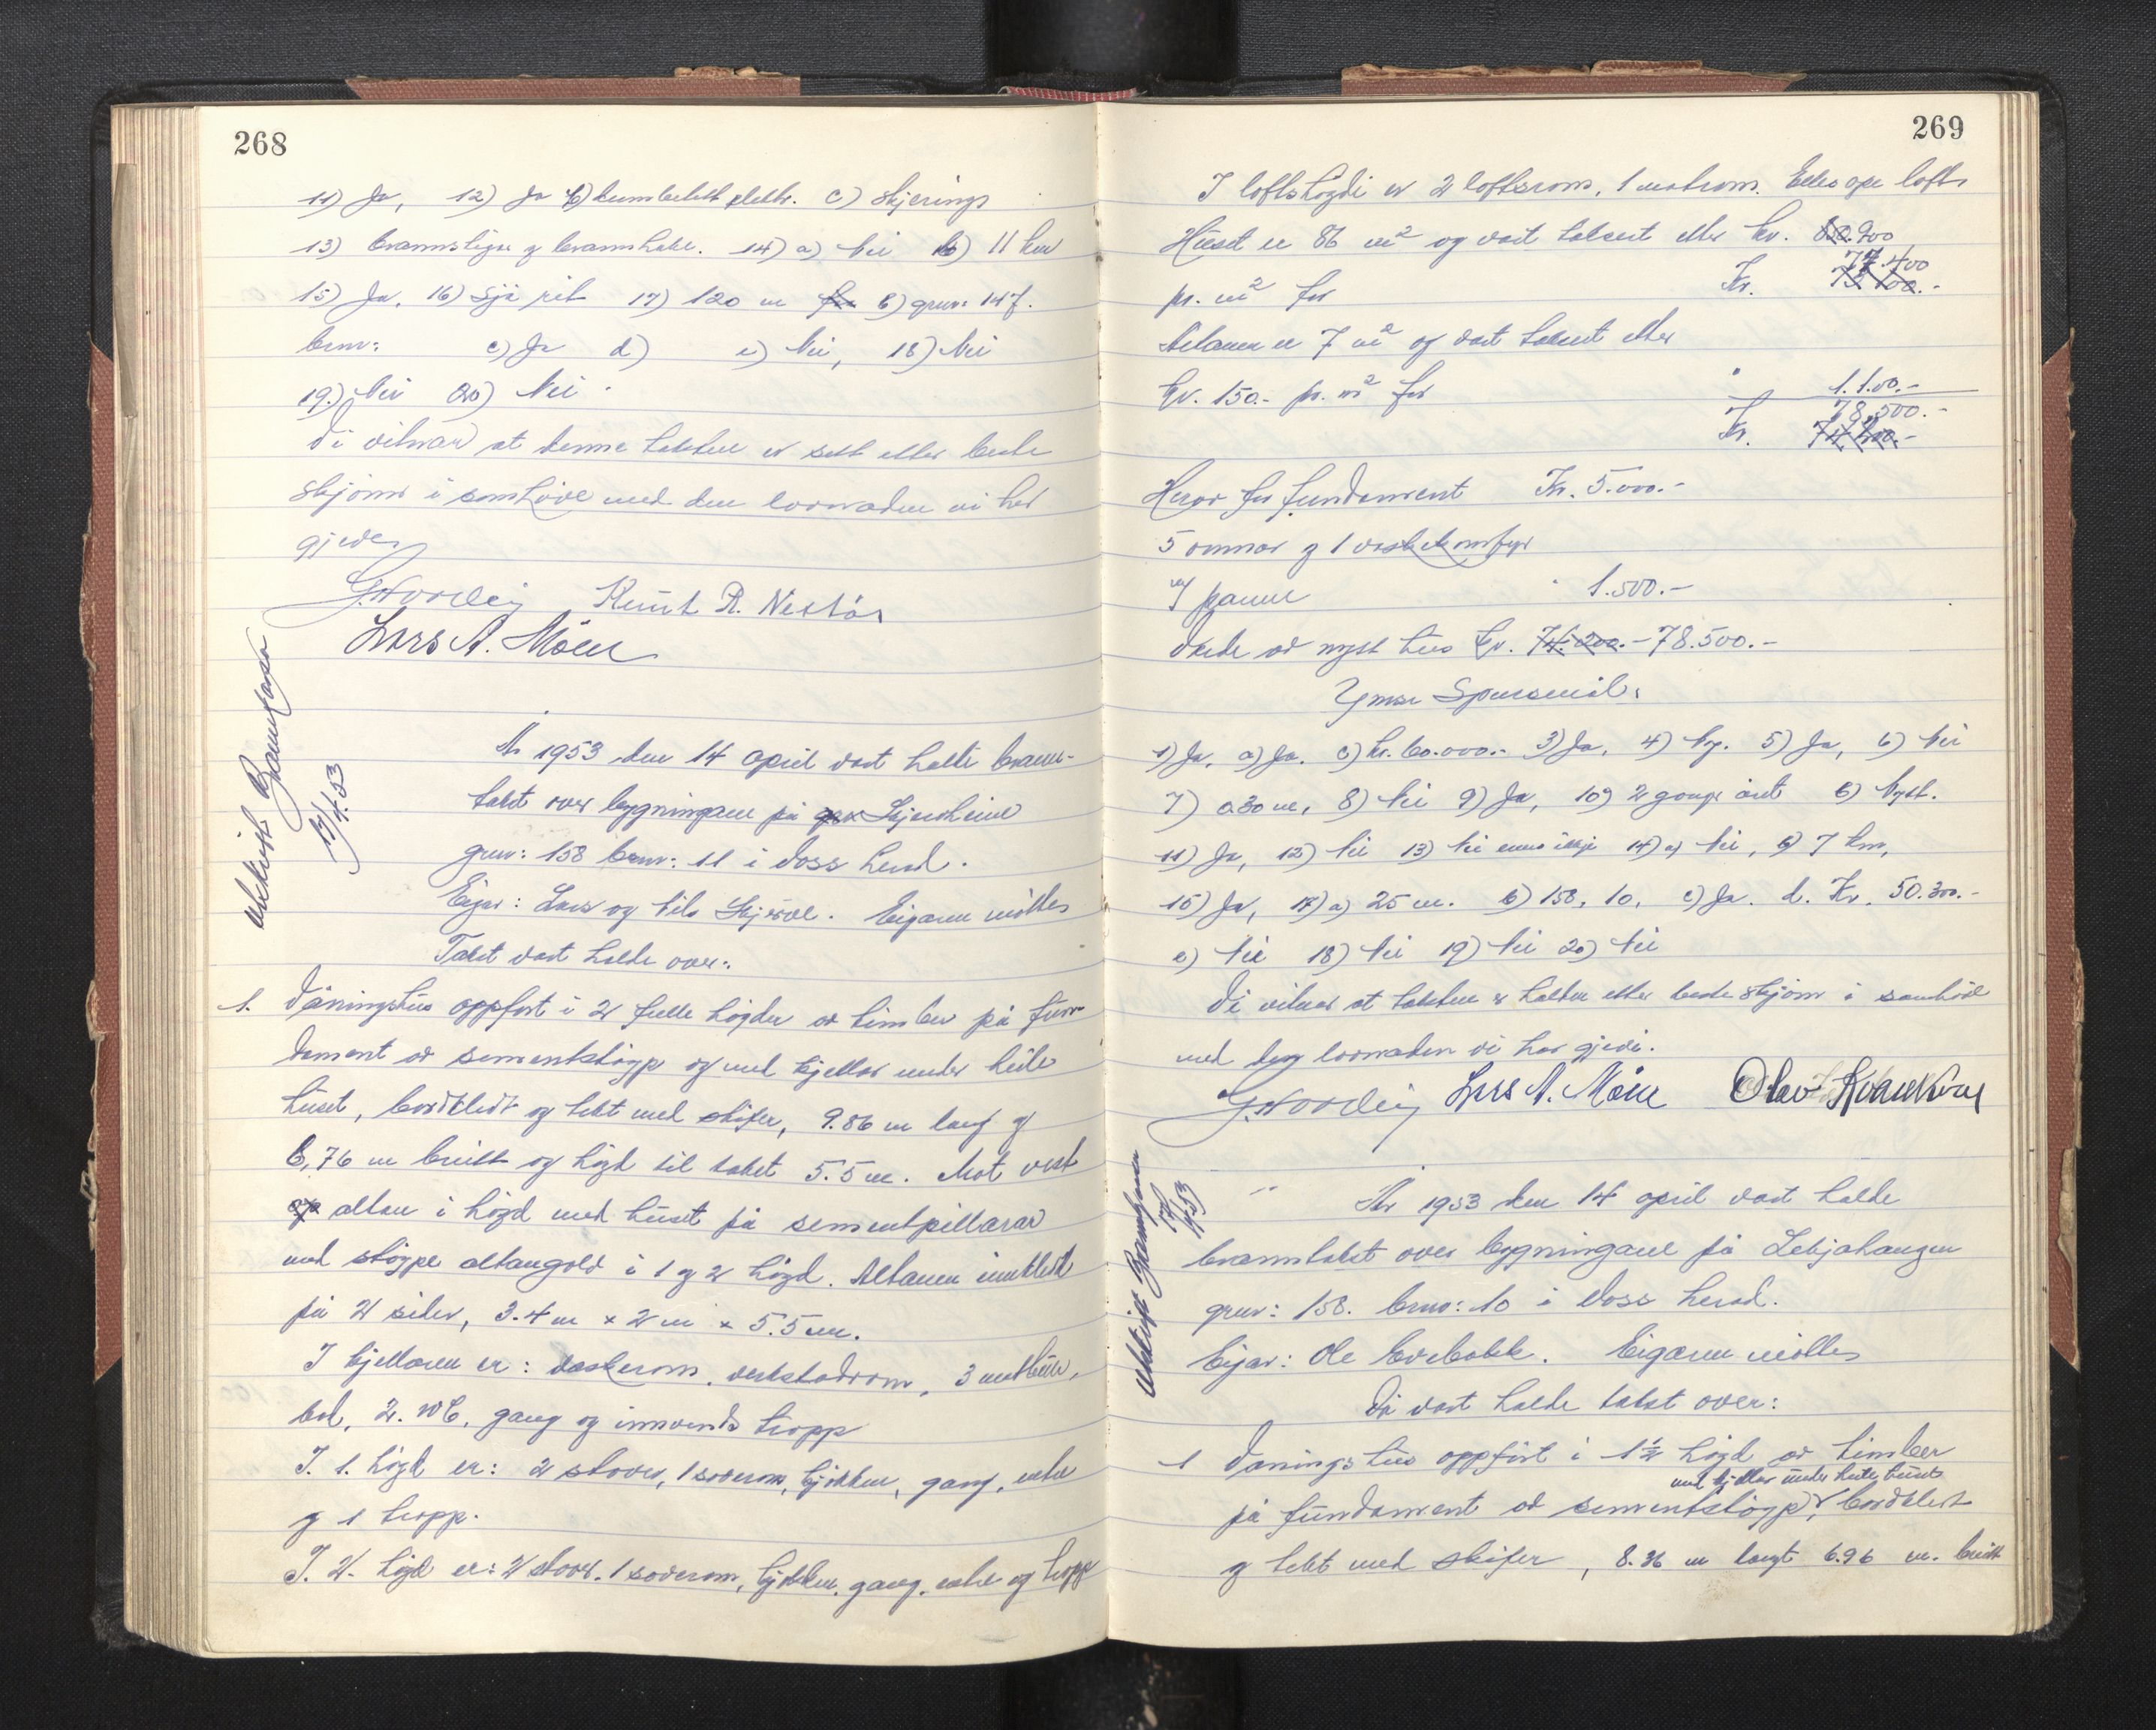 268
11) Ja, 12) Ja b) kumbelett elektr. c) skjerings
13) brannstigar og brannhake. 14) a) Nei b) 11 km
15) Ja. 16) Sjå rit 17) 120 m b) gnr: 147.
bnr: c) Ja d) e) Nei, 18) Nei
19) Nei 20) Nei.
Vi vitnar at denne taksten er sett etter beste
skjønn i samhøve med den lovnaden vi har
gjeve.
Knut R. Nestås
Lars A. Møen
Utskrift Brannkassa
17/4.53
År 1953 den 14 april vart halde brann-
takst over bygningane på Skjerheim
gnr: 158 bnr: 11 i Voss herad.
Eigar: Lars og Nils Skjerve. Eigaren møtte
Takst vart halde over:
1. Våningshus oppført i 2 fulle høgder av timber på fun-
dament av sementstøyp og med kjellar under heile
huset, bordkledt og tekt med skifer, 9.86 m lang og
8,76 m breitt og høgd til taket 5.5 m. Mot vest
altan i høgd med huset på sementpillarar
med støype altangolv i 1 og 2 høgd. Altanen innkledt
på 2 sider, 3.4 m x 2 m x 5.5 m.
I kjellaren er: vaskerom, verkstadrom, 3 matbuer,
bad, 2. WC, gang og innvends tropp
I. 1. høgd er: 2 stover, 1 soverom, kjøkken, gang, entre
og 1 tropp.
I. 2. høgd er: 2 stover. 1 soverom, kjøkken, gang, entre og tropp
269
I loftshøgdi er 2 loftsrom, 1 matrom. Elles ope loft
Huset er 86 m² og vart taksert etter kr. 900
pr. m² for Kr. 77.400
Altanen er 7 m² og vart taksert etter
kr. 150.- pr. m² for " 1.100.-
Kr. 78.500.-
Herav for fundament Kr. 5.000.-
5 omnar og 1 vaskekomfyr
m/ panne " 1.500.-
Verde av nytt hus kr. 74.200.- 78.500.-
Ymse Spursmål:
1) Ja. a) Ja. c) kr. 60.000.- 3) Ja, 4) Ny. 5) Ja, 6) Nei
7) 0.30 m, 8) Nei 9) Ja, 10) 2 gongr året b) Nytt.
11) Ja, 12) Nei 13) Nei enno ikkje 14) a) Nei, b) 7 km,
15) Ja, 17) a) 25 m. b) 158, 10, c) Ja. d. Kr. 50.300.-
e) Nei 18) Nei 19) Nei 20) Nei
Vi vitnar at taksten er halden etter beste skjønn i samhøve
med den lovnaden vi har gjeve.
Lars A. Møen Olav Kvarekvål
Utskrift Brannkassa
17/4.53
År 1953 den 14 april vart halde
branntakst over bygningane på Lekjahaugen
gnr: 158. bnr: 10 i Voss herad.
Eigar: Ole Brebakk. Eigaren møtte
Då vart halde takst over:
1 Våningshus oppført i 1½ høgd av timber
med kjellar under heile huset
på fundament av sementstøyp, bordkledt
og tekt med skifer, 8.36 m langt 6.96 m. breitt